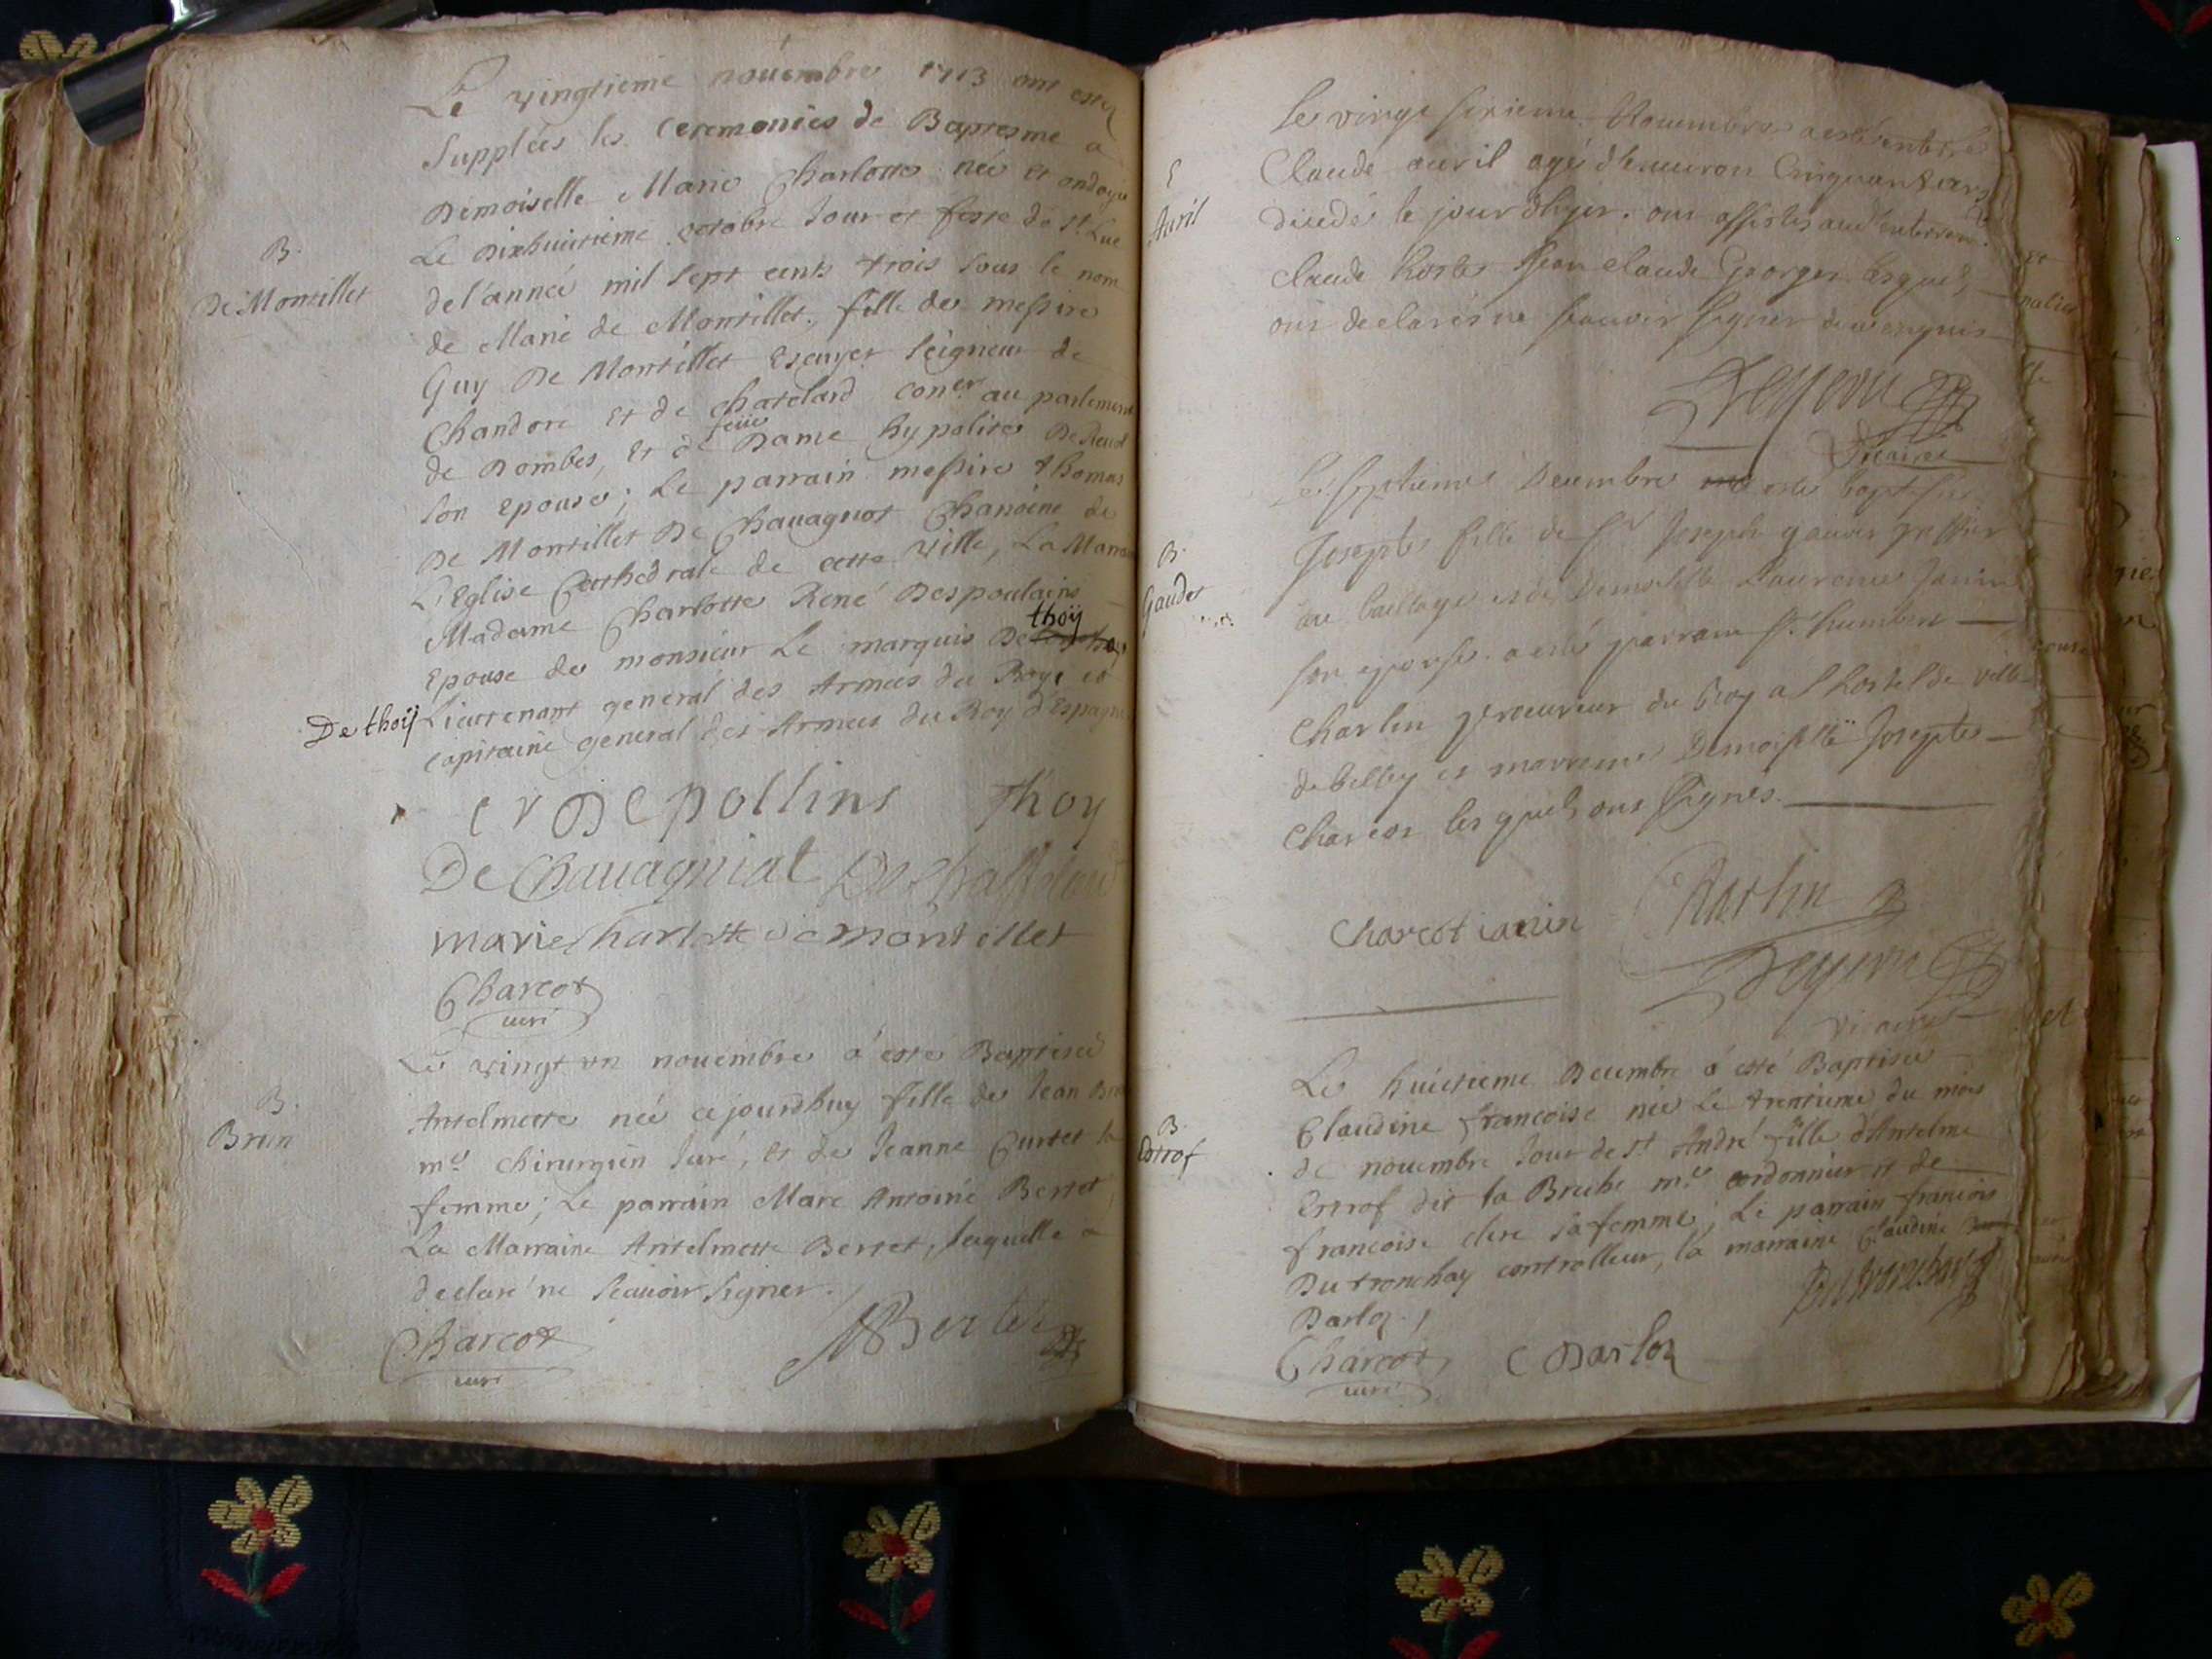 Le vingtieme nouembre 1713 ont estez
Supplées les Ceremonies de Baptesme a
Demoiselle Marie Charlotte née et ondoyée
B.
De Montillet
Le Dixhuitieme octobre Jour et feste de St. Luc
de l'année mil sept cents trois sous le nom
de Marie de Montillet, fille de messire
Guy De Montillet Escuyer Seigneur de
Chandore et de Chatelard coner. au parlement
de Dombes, et de feüe Dame hypolite De
son Epouse; Le parrain messire thomas
De Montillet De Chauagnot Chanoine de
L'Eglise Cathédrale de cette ville, La Marraine
Madame Charlotte René Despoulains
Epouse de monsieur Le marquis De thoÿ
De thoÿ
Lieutenant general des Armees du Roy, et
capitaine general des Armees du Roy d'Espagne
De pollins Thoy
De Chauagniat
marie Charlotte de montillet
Charcot
curé
Le vingt un nouembre à esté Baptisée
B.
Brun
Antelmette née cejourdhuy fille de Jean Brun
me. chirurgien juré, et de Jeanne Curtet sa
femme; Le parrain Marc Antoine Bertet,
La Marraine Antelmette Bertet, laquelle a
declaré ne sçauoir signer.
Charcot
curé
MBertet
Le vingt sixieme Nouembre a esté enterré
E
Auril
Claude auril agé d'enuiron Cinquant ans
décédé le jour d'hyer. ont assistés aud. enterrem.
claude Jean claude Georges lesquels
ont declarés ne scauoir signer de ce enquis
Vicaire
Le septieme Decembre esté baptisée
B.
Gaudet
Josepte fille de Sr Joseph gaudet greffier
au bailliage et de Demoiselle Laurence Janin
son epouse. a esté parrain Sr. humbert
Charlin procureur du Roy a l hostel de ville
de belley et marraine Demoiselle Josepte
Charcot lesquels ont signés.
Charcot ianin Charlin
vicaire
Le huictieme Decembre à esté Baptisée
B.
Estrof
Claudine francoise née Le trentieme du mois
de nouembre Jour de St André fille d'Antelme
Estrof dit la Breche me. cordonnier et de
francoise clere sa femme; Le parrain francois
Du tronchay controlleur, la marraine Claudine
Darloz.
Dutronchay
Charcot
curé
C Darloz